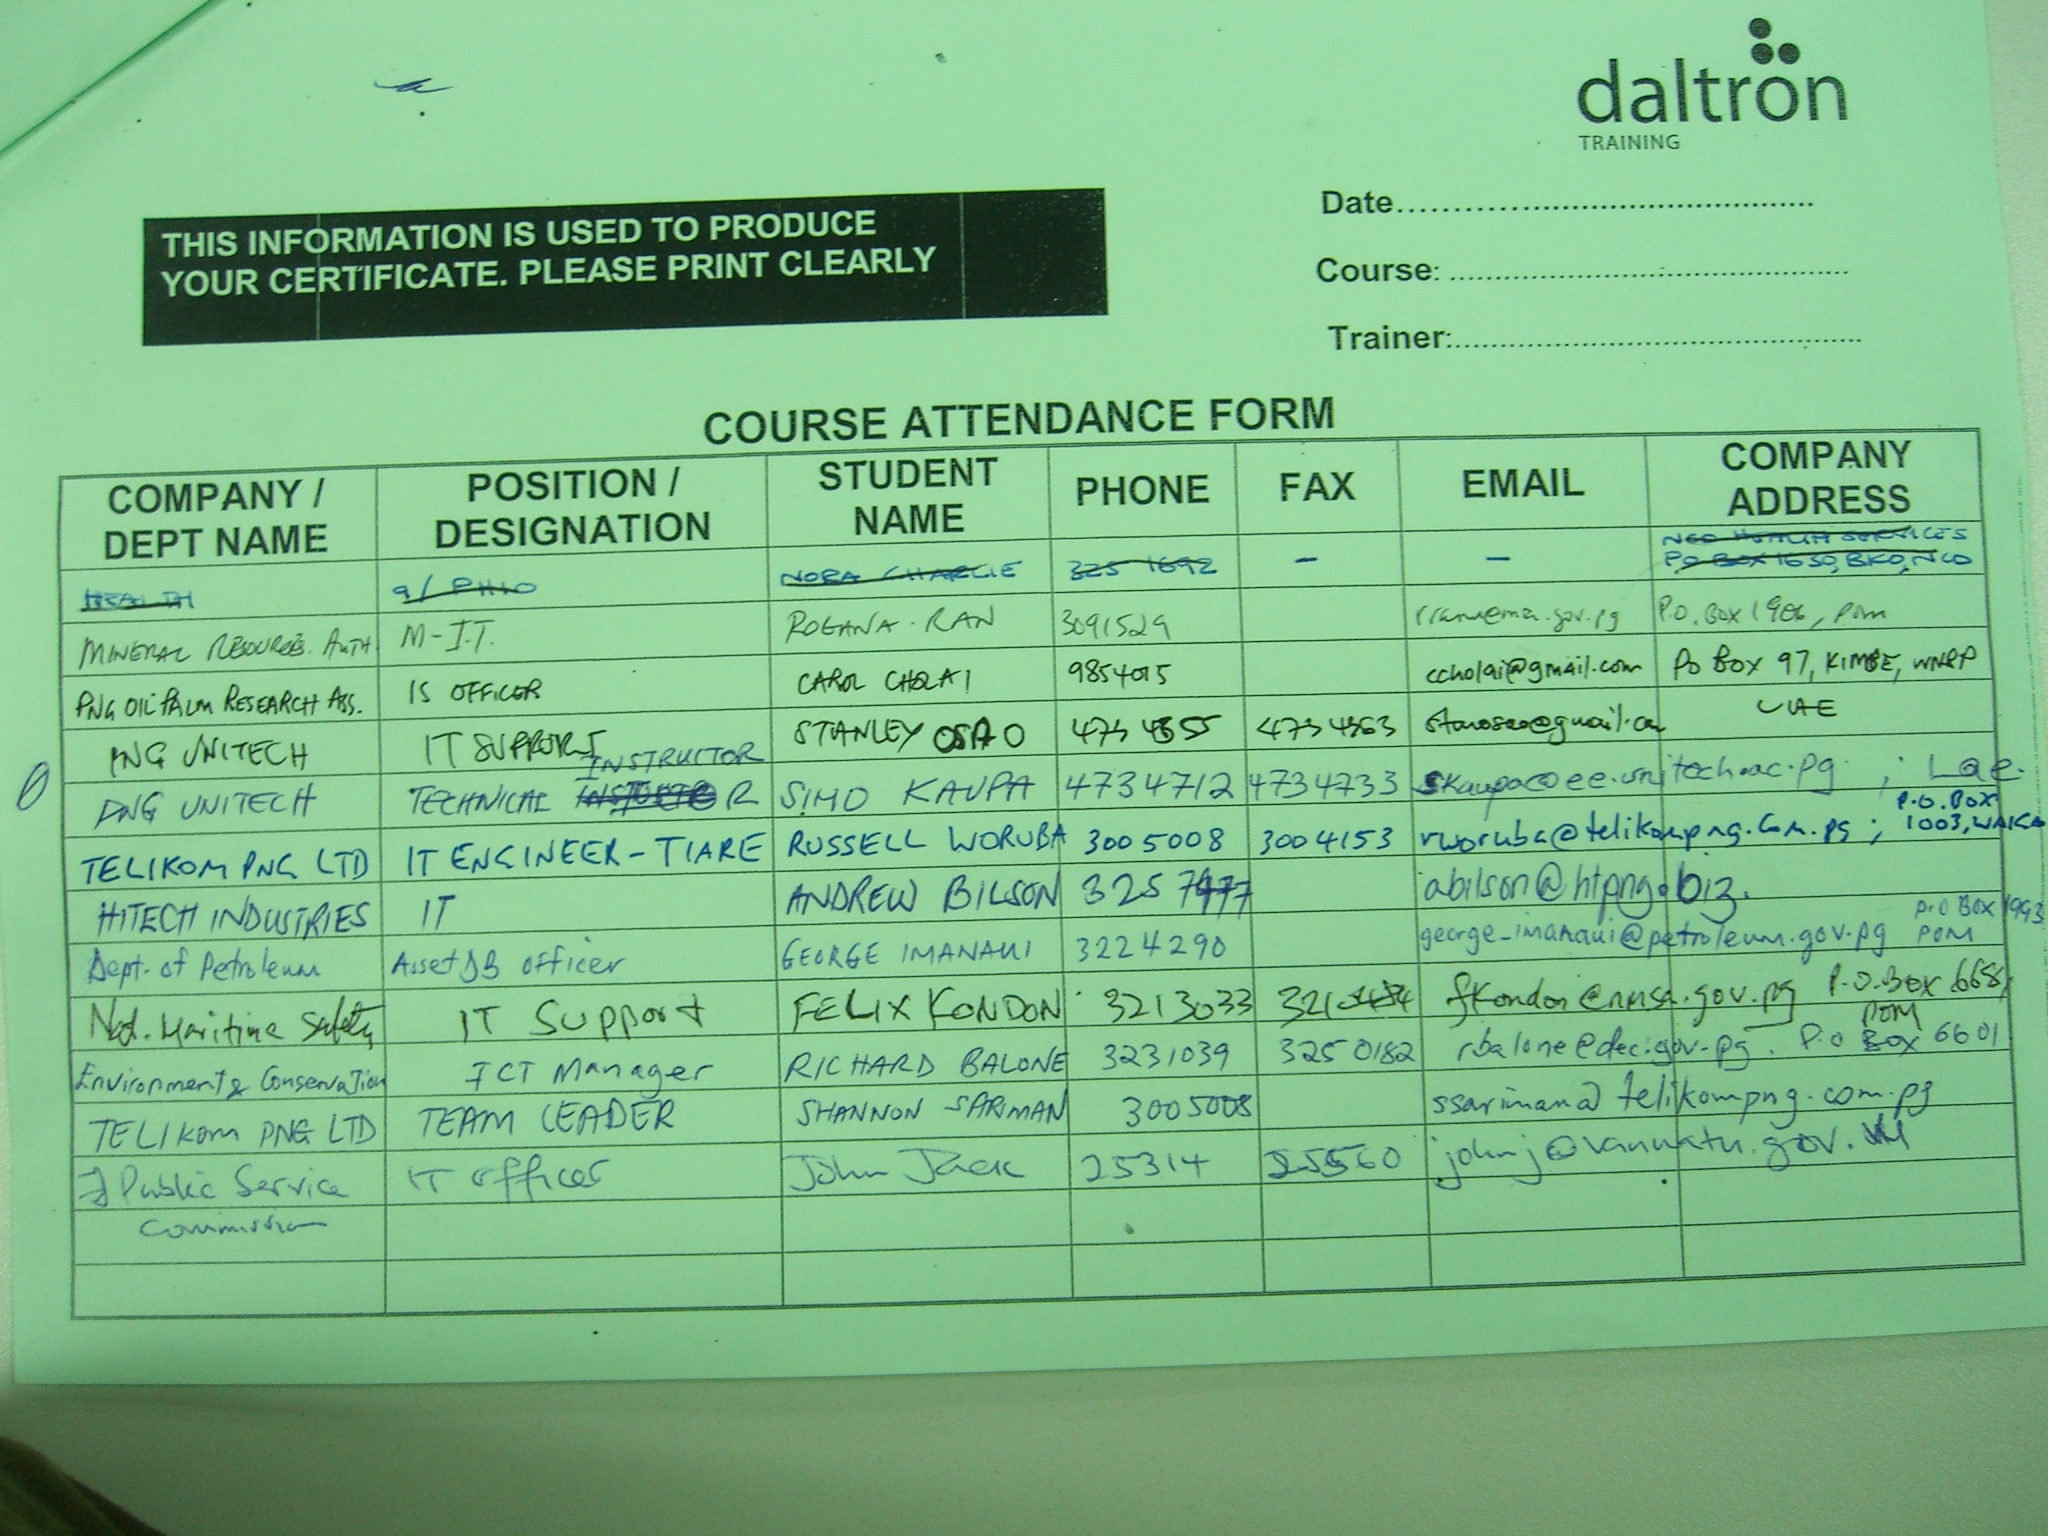 daltron
TRAINING
THIS INFORMATION IS USED TO PRODUCE
YOUR CERTIFICATE. PLEASE PRINT CLEARLY
Date
Course:
Trainer:
COURSE ATTENDANCE FORM
COMPANY / DEPT NAME POSITION / DESIGNATION STUDENT NAME PHONE FAX EMAIL COMPANY ADDRESS
HEALTH NORA CHARLIE 325 1692 – – NCD HEALTH SERVICES PO BOX 1650, BKO, NCD
MINERAL RESOURCES AUTH. M-I.T. ROGANA. RAN 3091529 P.O. Box 1906, Pom
PNG OIL PALM RESEARCH ASS. IS OFFICER CAROL CHOLAI 9854015 ccholai@gmail.com Po Box 97, KIMBE, WNBP
PNG UNITECH IT SUPPORT STANLEY OSAO 473 4355 473 4363
PNG UNITECH TECHNICAL INSTRUCTOR SIMO KAUPA 4734712 4734733 skaupa@ee.unitech.ac.pg ; Lae.
TELIKOM PNG LTD IT ENGINEER-TIARE RUSSELL WORUBA 3005008 3004153 rworuba@telikompng.com.pg ; P.O. BOX 1003, WAIGA
HITECH INDUSTRIES IT ANDREW BILSON abilson@htpng.biz.
Dept. of Petroleum Asset DB officer GEORGE IMANAUI 3224290 george_imanaui@petroleum.gov.pg P.O BOX 1993 POM
Nat. Maritime Safety IT Support FELIX KONDON 3213033 fkondon@nmsa.gov.pg P.O.Box 668, POM
Environment & Conservation ICT Manager RICHARD BALONE 3231039 3250182 rbalone@dec.gov.pg. P.o Box 6601
TELIKOM PNG LTD TEAM LEADER SHANNON SARIMAN 3005008 ssariman@telikompng.com.pg
Public Service Commission IT officer John Jack 25314 25560 johnj@vanuatu.gov.